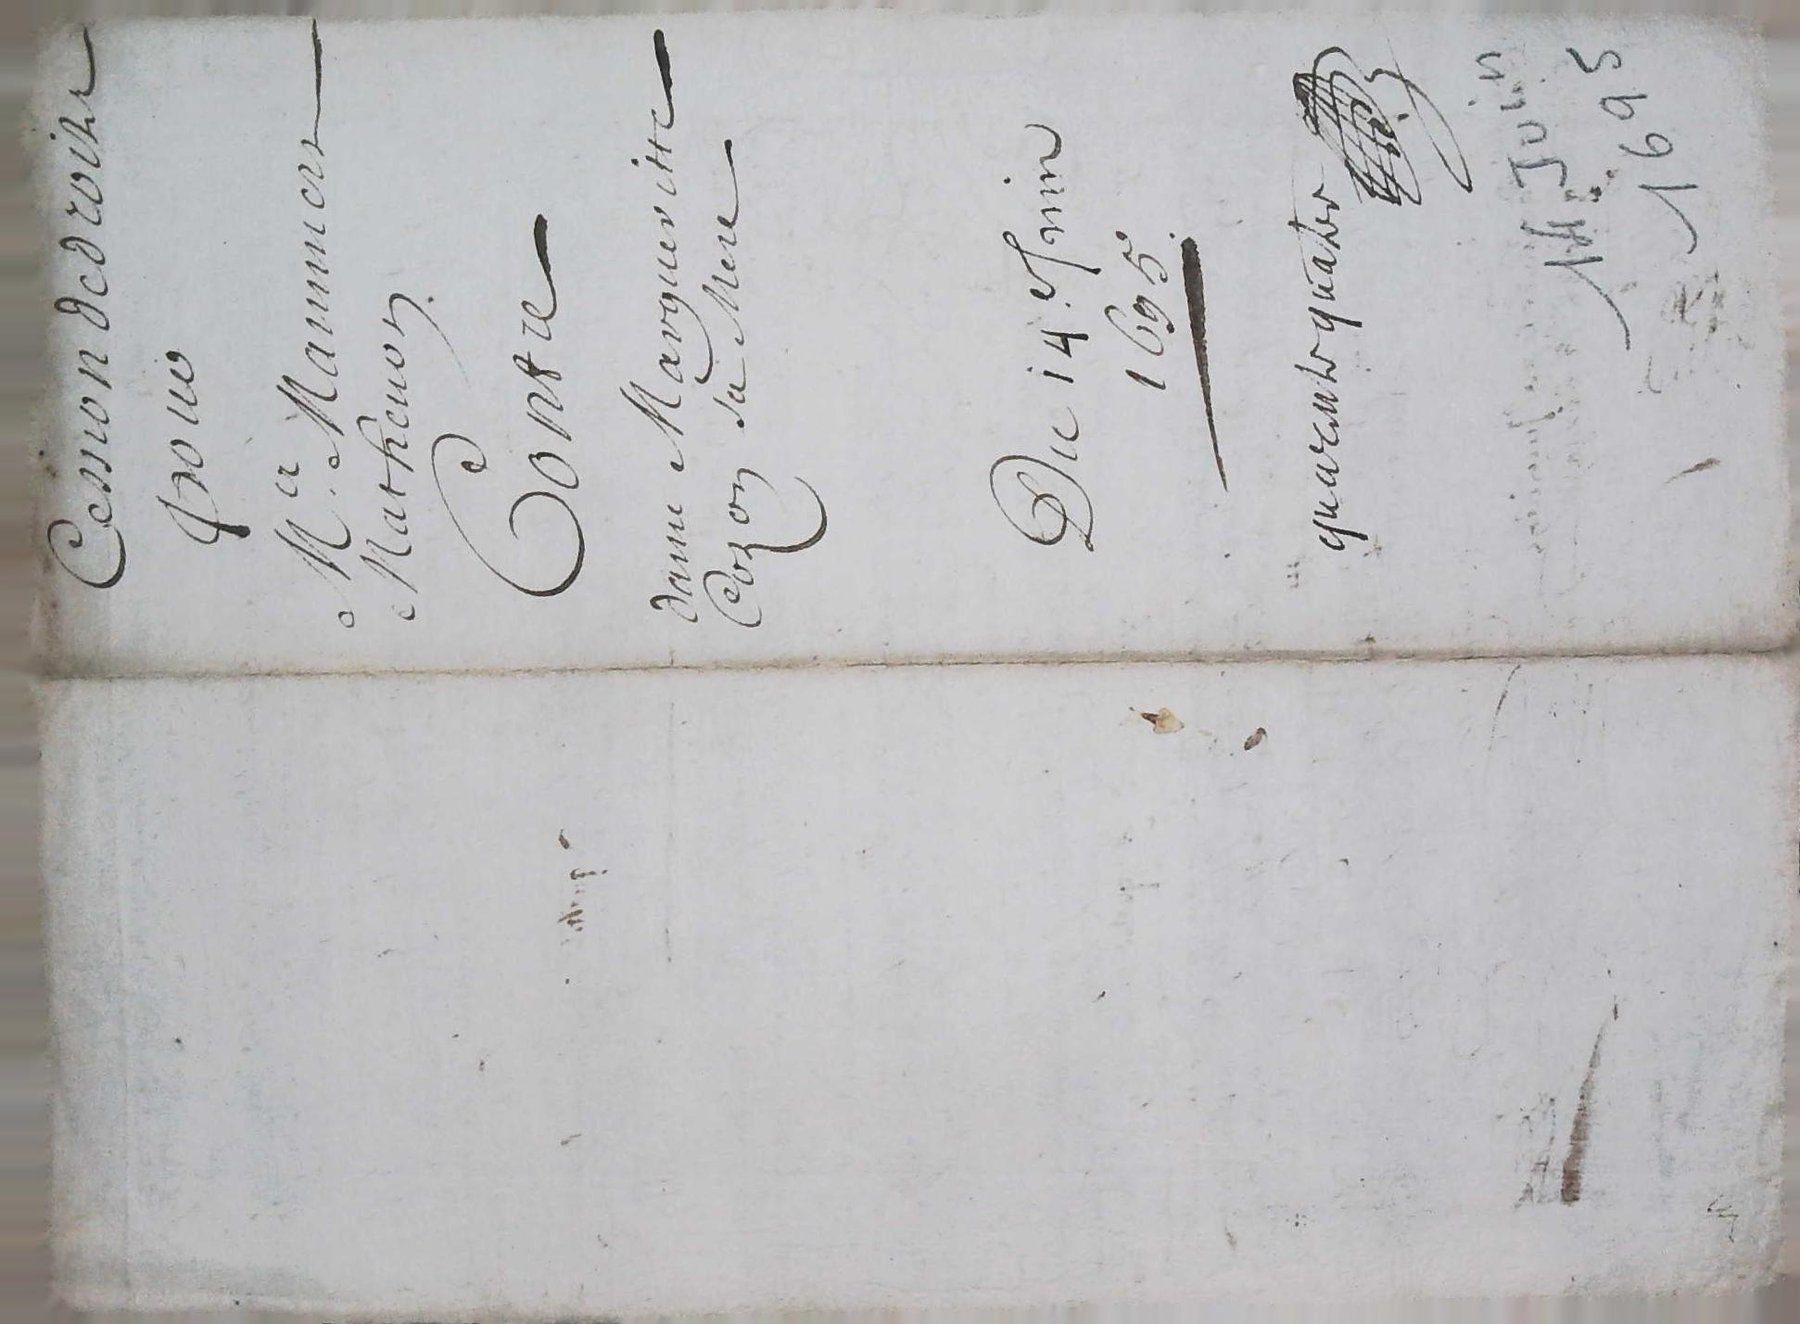 Cession de droits
pour
Mr. Me Mammers
Mathevon
Contre
dame Margueritte
Cozon sa Mere
Du 14e Juin
1695
quarente quatre
14 Juin
1695